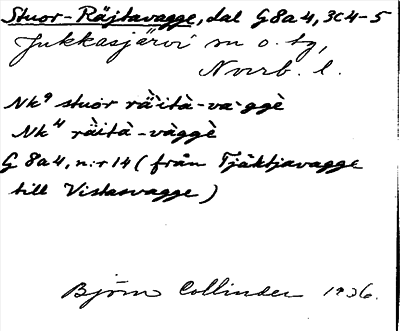 Stuor-Räjtavagge, dal G8a4, 3C4-5
Jukkasjärvi sn o. tg,
Norrb. l.
Nk⁹ stuor räità-va·ggè
Nk⁴ räità-vàggè
G 8a4, n:r 14 (från Tjäktjavagge
till Vistasvagge)
Björn Collinder 1936.